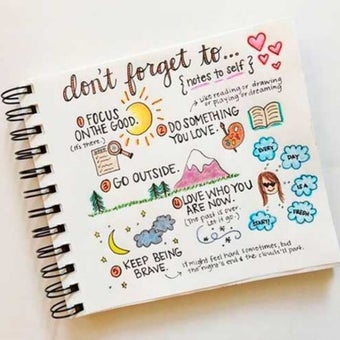 don't forget to...
{notes to self}
Like reading or drawing
or playing or dreaming
① FOCUS
ON THE GOOD.
(It's there.)
② DO SOMETHING
YOU LOVE.
③ GO OUTSIDE.
④ LOVE WHO YOU
ARE NOW.
(The past is over.
Let it go.)
EVERY
DAY
IS A
FRESH
START
⑤ KEEP BEING
BRAVE.
it might feel hard sometimes, but
the night's end & the clouds'll part.